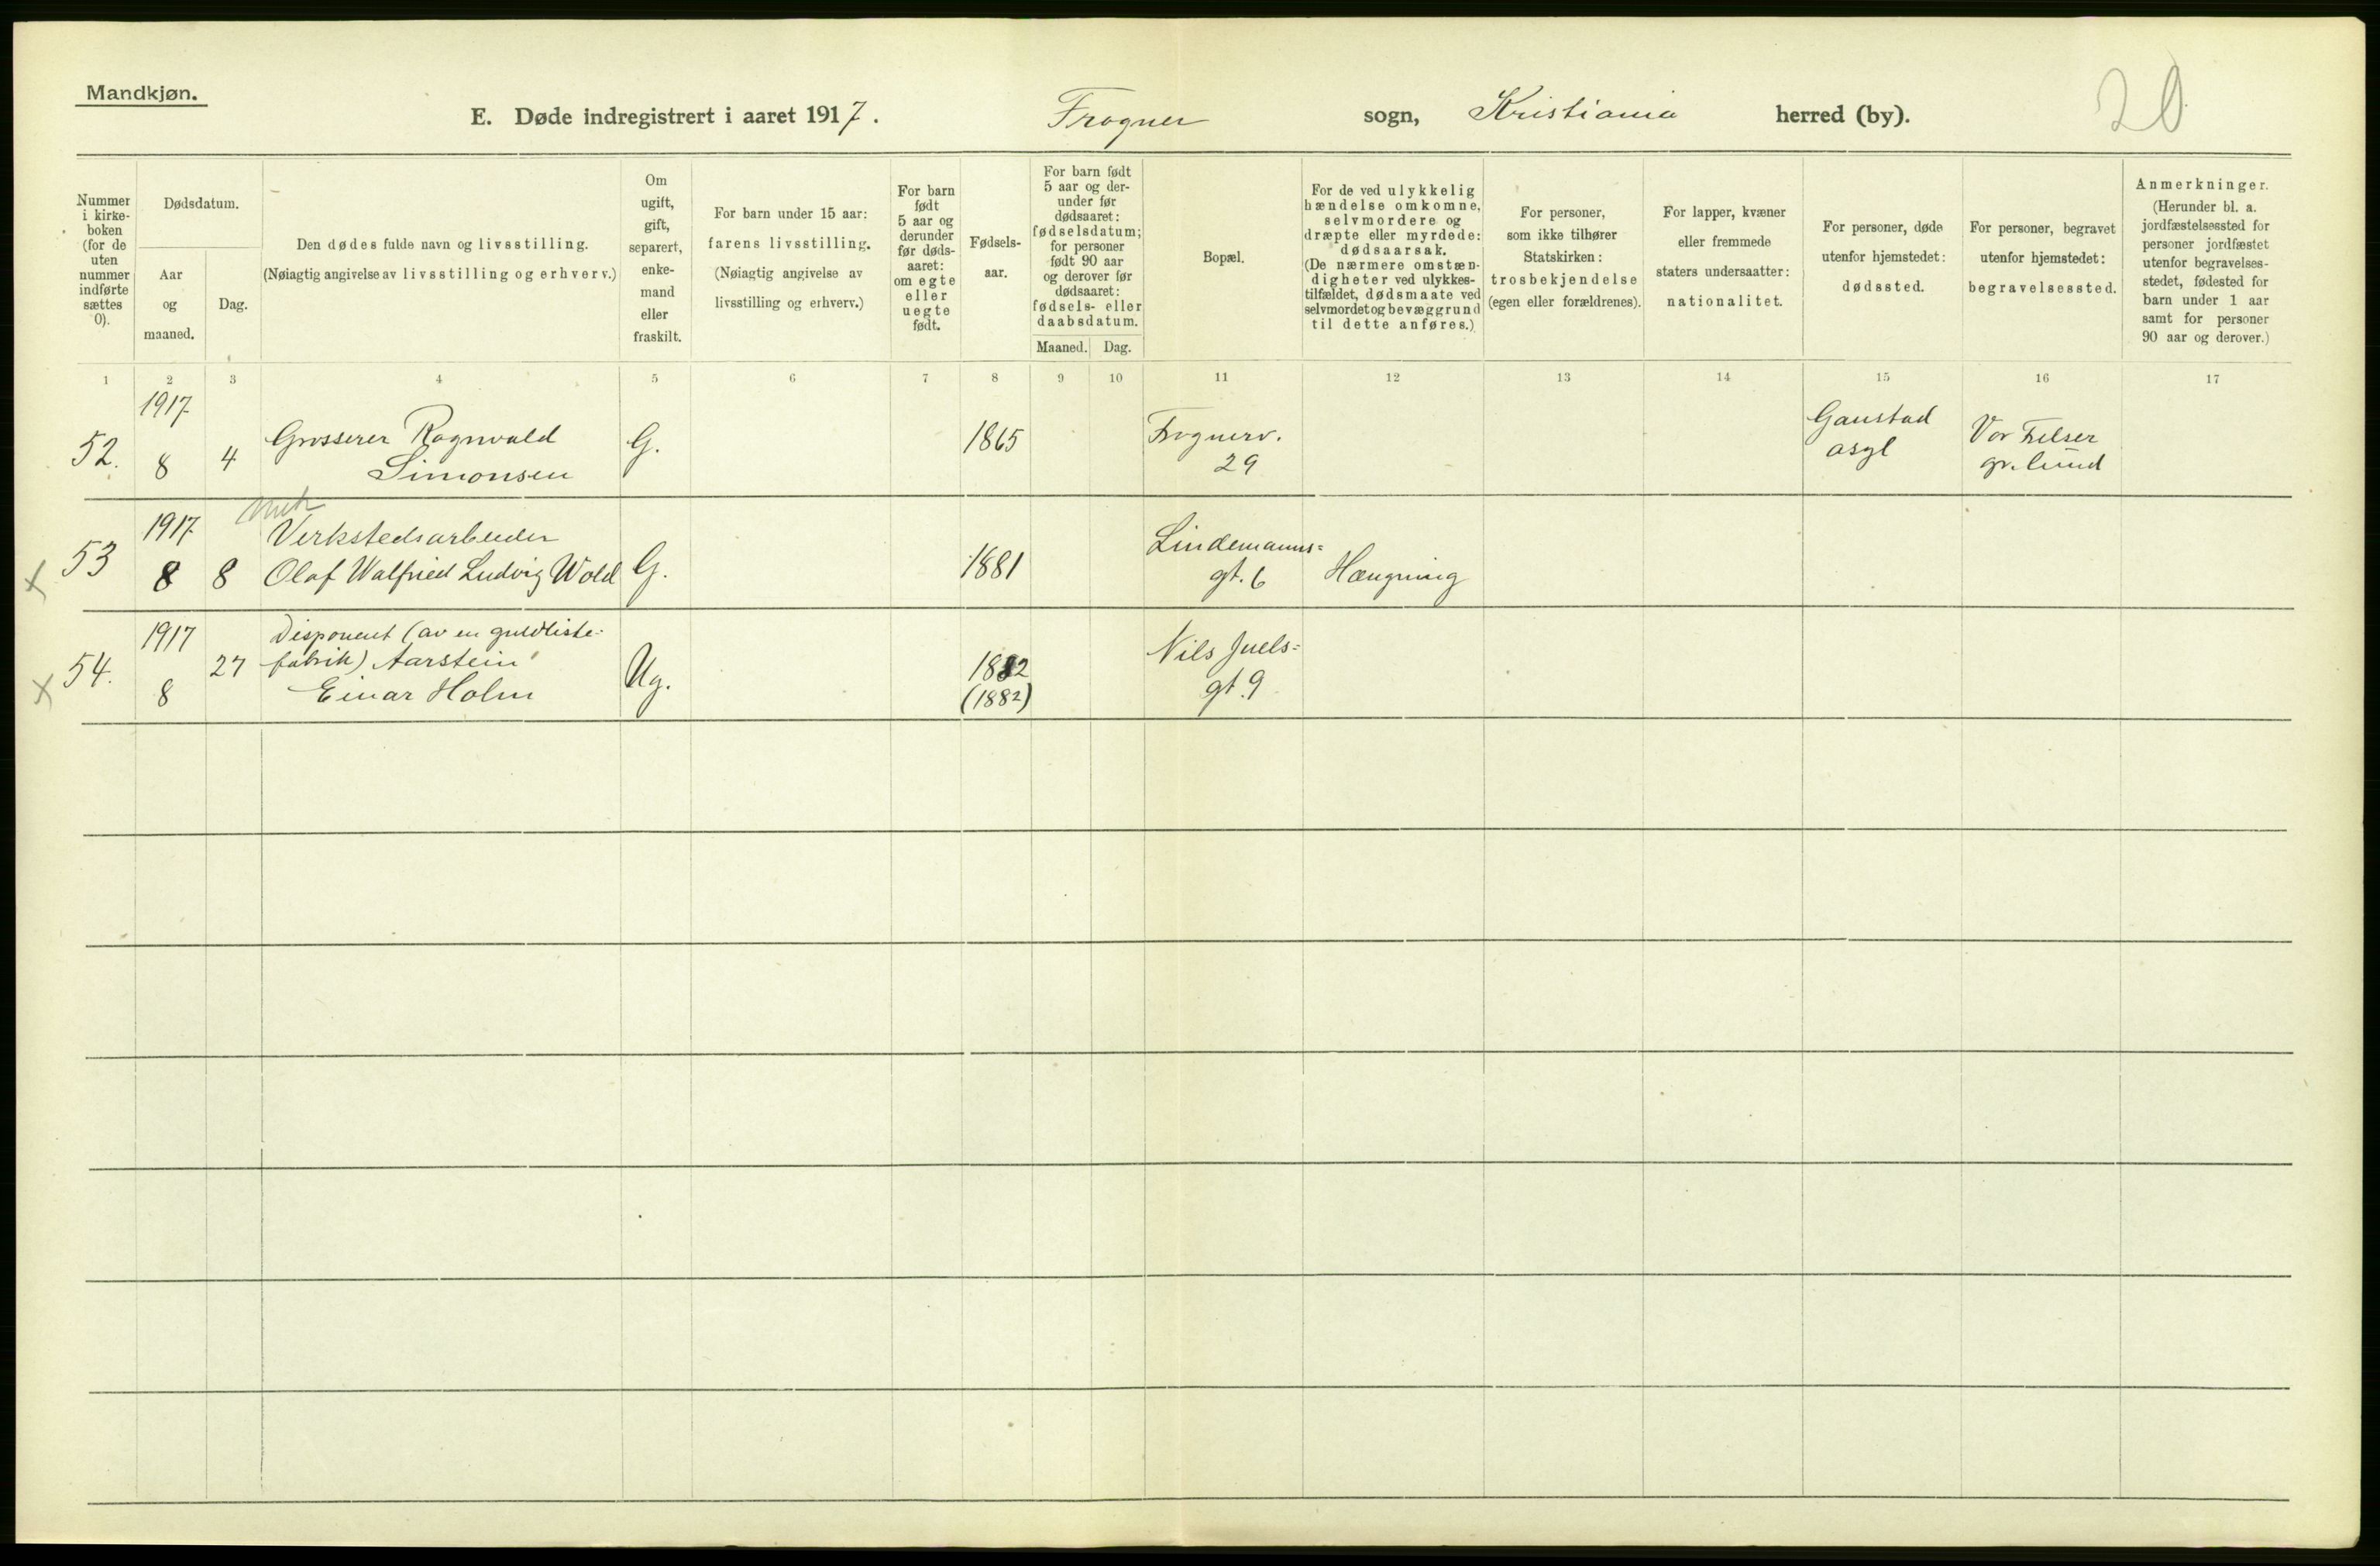 Mandkjøn.
E. Døde indregistrert i aaret 1917. Frogner sogn, Kristiania herred (by).
20
Nummer
i kirke-
boken
(for de
uten
nummer
indførte
sættes
0).
Dødsdatum.
Aar
og
maaned.
Dag.
Den dødes fulde navn og livsstilling.
(Nøiagtig angivelse av livsstilling og erhverv.)
Om
ugift,
gift,
separert,
enke-
mand
eller
fraskilt.
For barn under 15 aar:
farens livsstilling.
(Nøiagtig angivelse av
livsstilling og erhverv.)
For barn
født
5 aar og
derunder
før døds-
aaret:
om egte
eller
uegte
født.
Fødsels-
aar.
For barn født
5 aar og der-
under før
dødsaaret:
fødselsdatum;
for personer
født 90 aar
og derover før
dødsaaret:
fødsels- eller
daabsdatum.
Maaned. Dag.
Bopæl.
For de ved ulykkelig
hændelse omkomne,
selvmordere og
dræpte eller myrdede:
dødsaarsak.
(De nærmere omstæn-
digheter ved ulykkes-
tilfældet, dødsmaate ved
selvmordet og bevæggrund
til dette anføres.)
For personer,
som ikke tilhører
Statskirken:
trosbekjendelse
(egen eller forældrenes).
For lapper, kvæner
eller fremmede
staters undersaatter:
nationalitet.
For personer, døde
utenfor hjemstedet:
dødssted.
For personer, begravet
utenfor hjemstedet:
begravelsessted.
Anmerkninger.
(Herunder bl. a.
jordfæstelsessted for
personer jordfæstet
utenfor begravelses-
stedet, fødested for
barn under 1 aar
samt for personer
90 aar og derover.)
1 2 3 4 5 6 7 8 9 10 11 12 13 14 15 16 17
52.
1917
8
4
Grosserer Ragnvald
Simonsen
G.
1865
Frognerv.
29
Gaustad
asyl
Vor Frelser
gr. lund
x 53
1917
8
8
Verkstedsarbeider
Olaf Walfried Ludvig Wold
G.
1881
Lindemanns=
gt. 6
Hængning
x 54.
1917
8
27
Disponent (av en guldliste-
fabrik) Aarstein
Einar Holm
Ug.
1882
(1882)
Nils Juels=
gt. 9